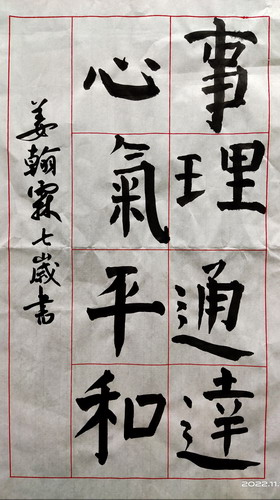 事理通達
心氣平和
姜翰霖七歲書
2022.11